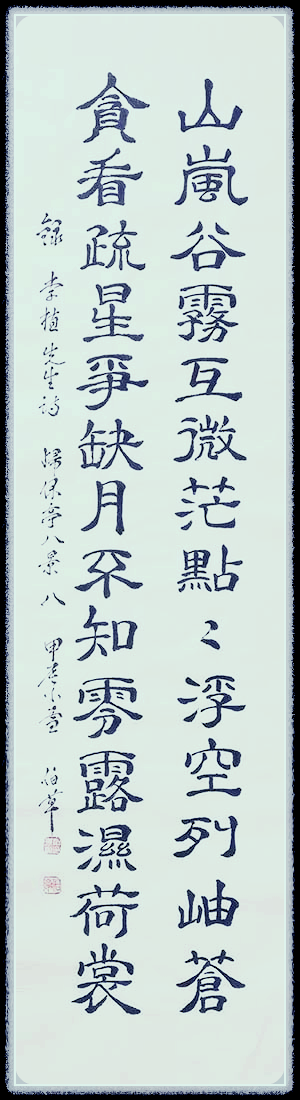 山嵐谷霧互微茫點〻浮空列岫蒼
貪看疏星爭缺月不知零露濕荷裳
錄 李植先生詩 歸休亭八景 八 甲辰小